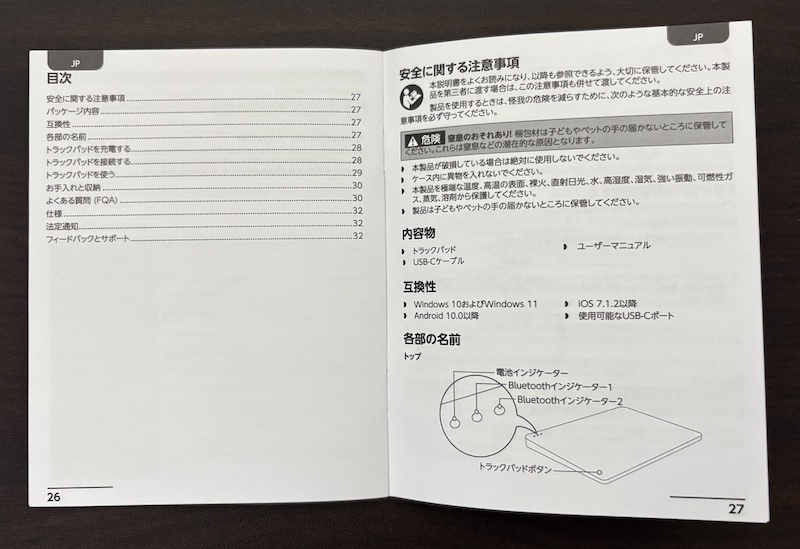 JP
目次
安全に関する注意事項 27
パッケージ内容 27
互換性 27
各部の名前 27
トラックパッドを充電する 28
トラックパッドを接続する 28
トラックパッドを使う 29
お手入れと収納 30
よくある質問 (FQA) 30
仕様 32
法定通知 32
フィードバックとサポート 32
26
JP
安全に関する注意事項
本説明書をよくお読みになり、以降も参照できるよう、大切に保管してください。本製
品を第三者に渡す場合は、この注意事項も併せて渡してください。
製品を使用するときは、怪我の危険を減らすために、次のような基本的な安全上の注
意事項を必ず守ってください。
危険 窒息のおそれあり! 梱包材は子どもやペットの手の届かないところに保管して
ください。これらは窒息などの潜在的な原因となります。
本製品が破損している場合は絶対に使用しないでください。
ケース内に異物を入れないでください。
本製品を極端な温度、高温の表面、裸火、直射日光、水、高湿度、湿気、強い振動、可燃性ガ
ス、蒸気、溶剤から保護してください。
製品は子どもやペットの手の届かないところに保管してください。
内容物
トラックパッド
USB-Cケーブル
ユーザーマニュアル
互換性
Windows 10およびWindows 11
Android 10.0以降
iOS 7.1.2以降
使用可能なUSB-Cポート
各部の名前
トップ
電池インジケーター
Bluetoothインジケーター1
Bluetoothインジケーター2
トラックパッドボタン
27